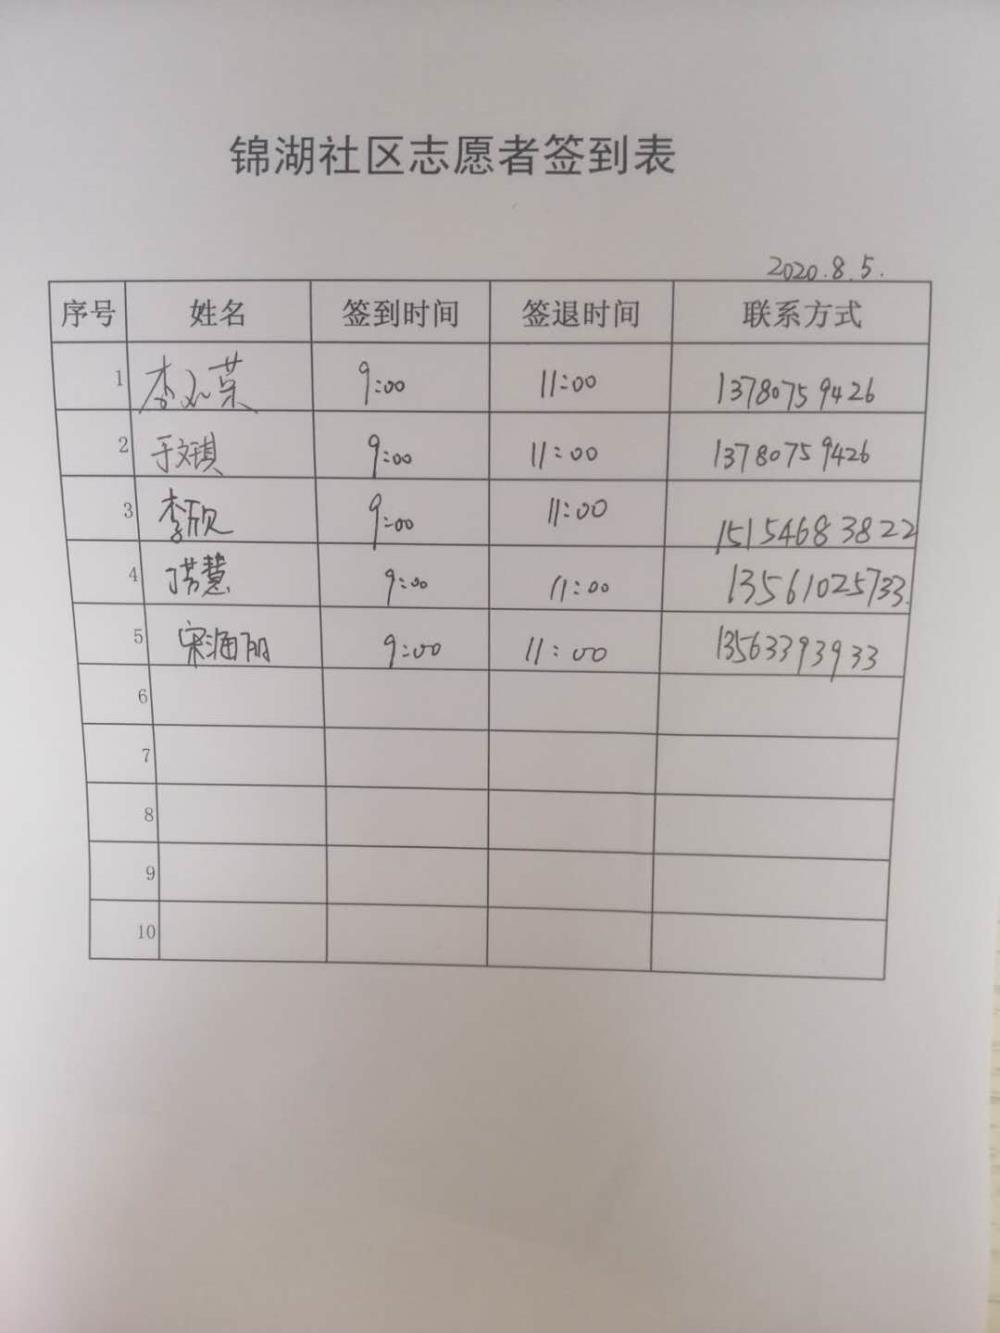 锦湖社区志愿者签到表
2020.8.5.
序号 姓名 签到时间 签退时间 联系方式
1 李 荣 9:00 11:00 13780759426
2 于文琪 9:00 11:00 13780759426
3 李欣 9:00 11:00 15154683822
4 丁芳慧 9:00 11:00 13561025733.
5 宋海丽 9:00 11:00 13563393933
6
7
8
9
10